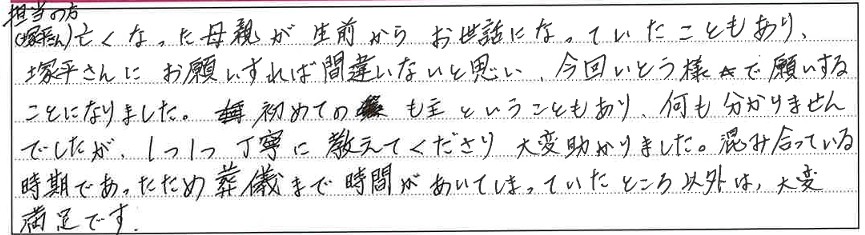 担当の方
(塚平さん)亡くなった母親が生前からお世話になっていたこともあり、
塚平さんにお願いすれば間違いないと思い、今回いとう様で願いする
ことになりました。初めてのも主ということもあり、何も分かりません
でしたが、1つ1つ丁寧に教えてくださり大変助かりました。混み合っている
時期であったため葬儀まで時間があいてしまっていたところ以外は、大変
満足です.